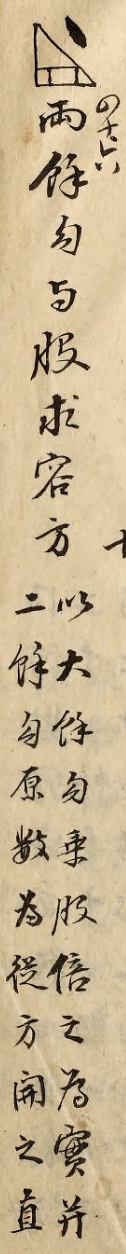 両餘勾与股求容方
以大餘勾乗股倍之為實并
二餘勾原數為從方開之直